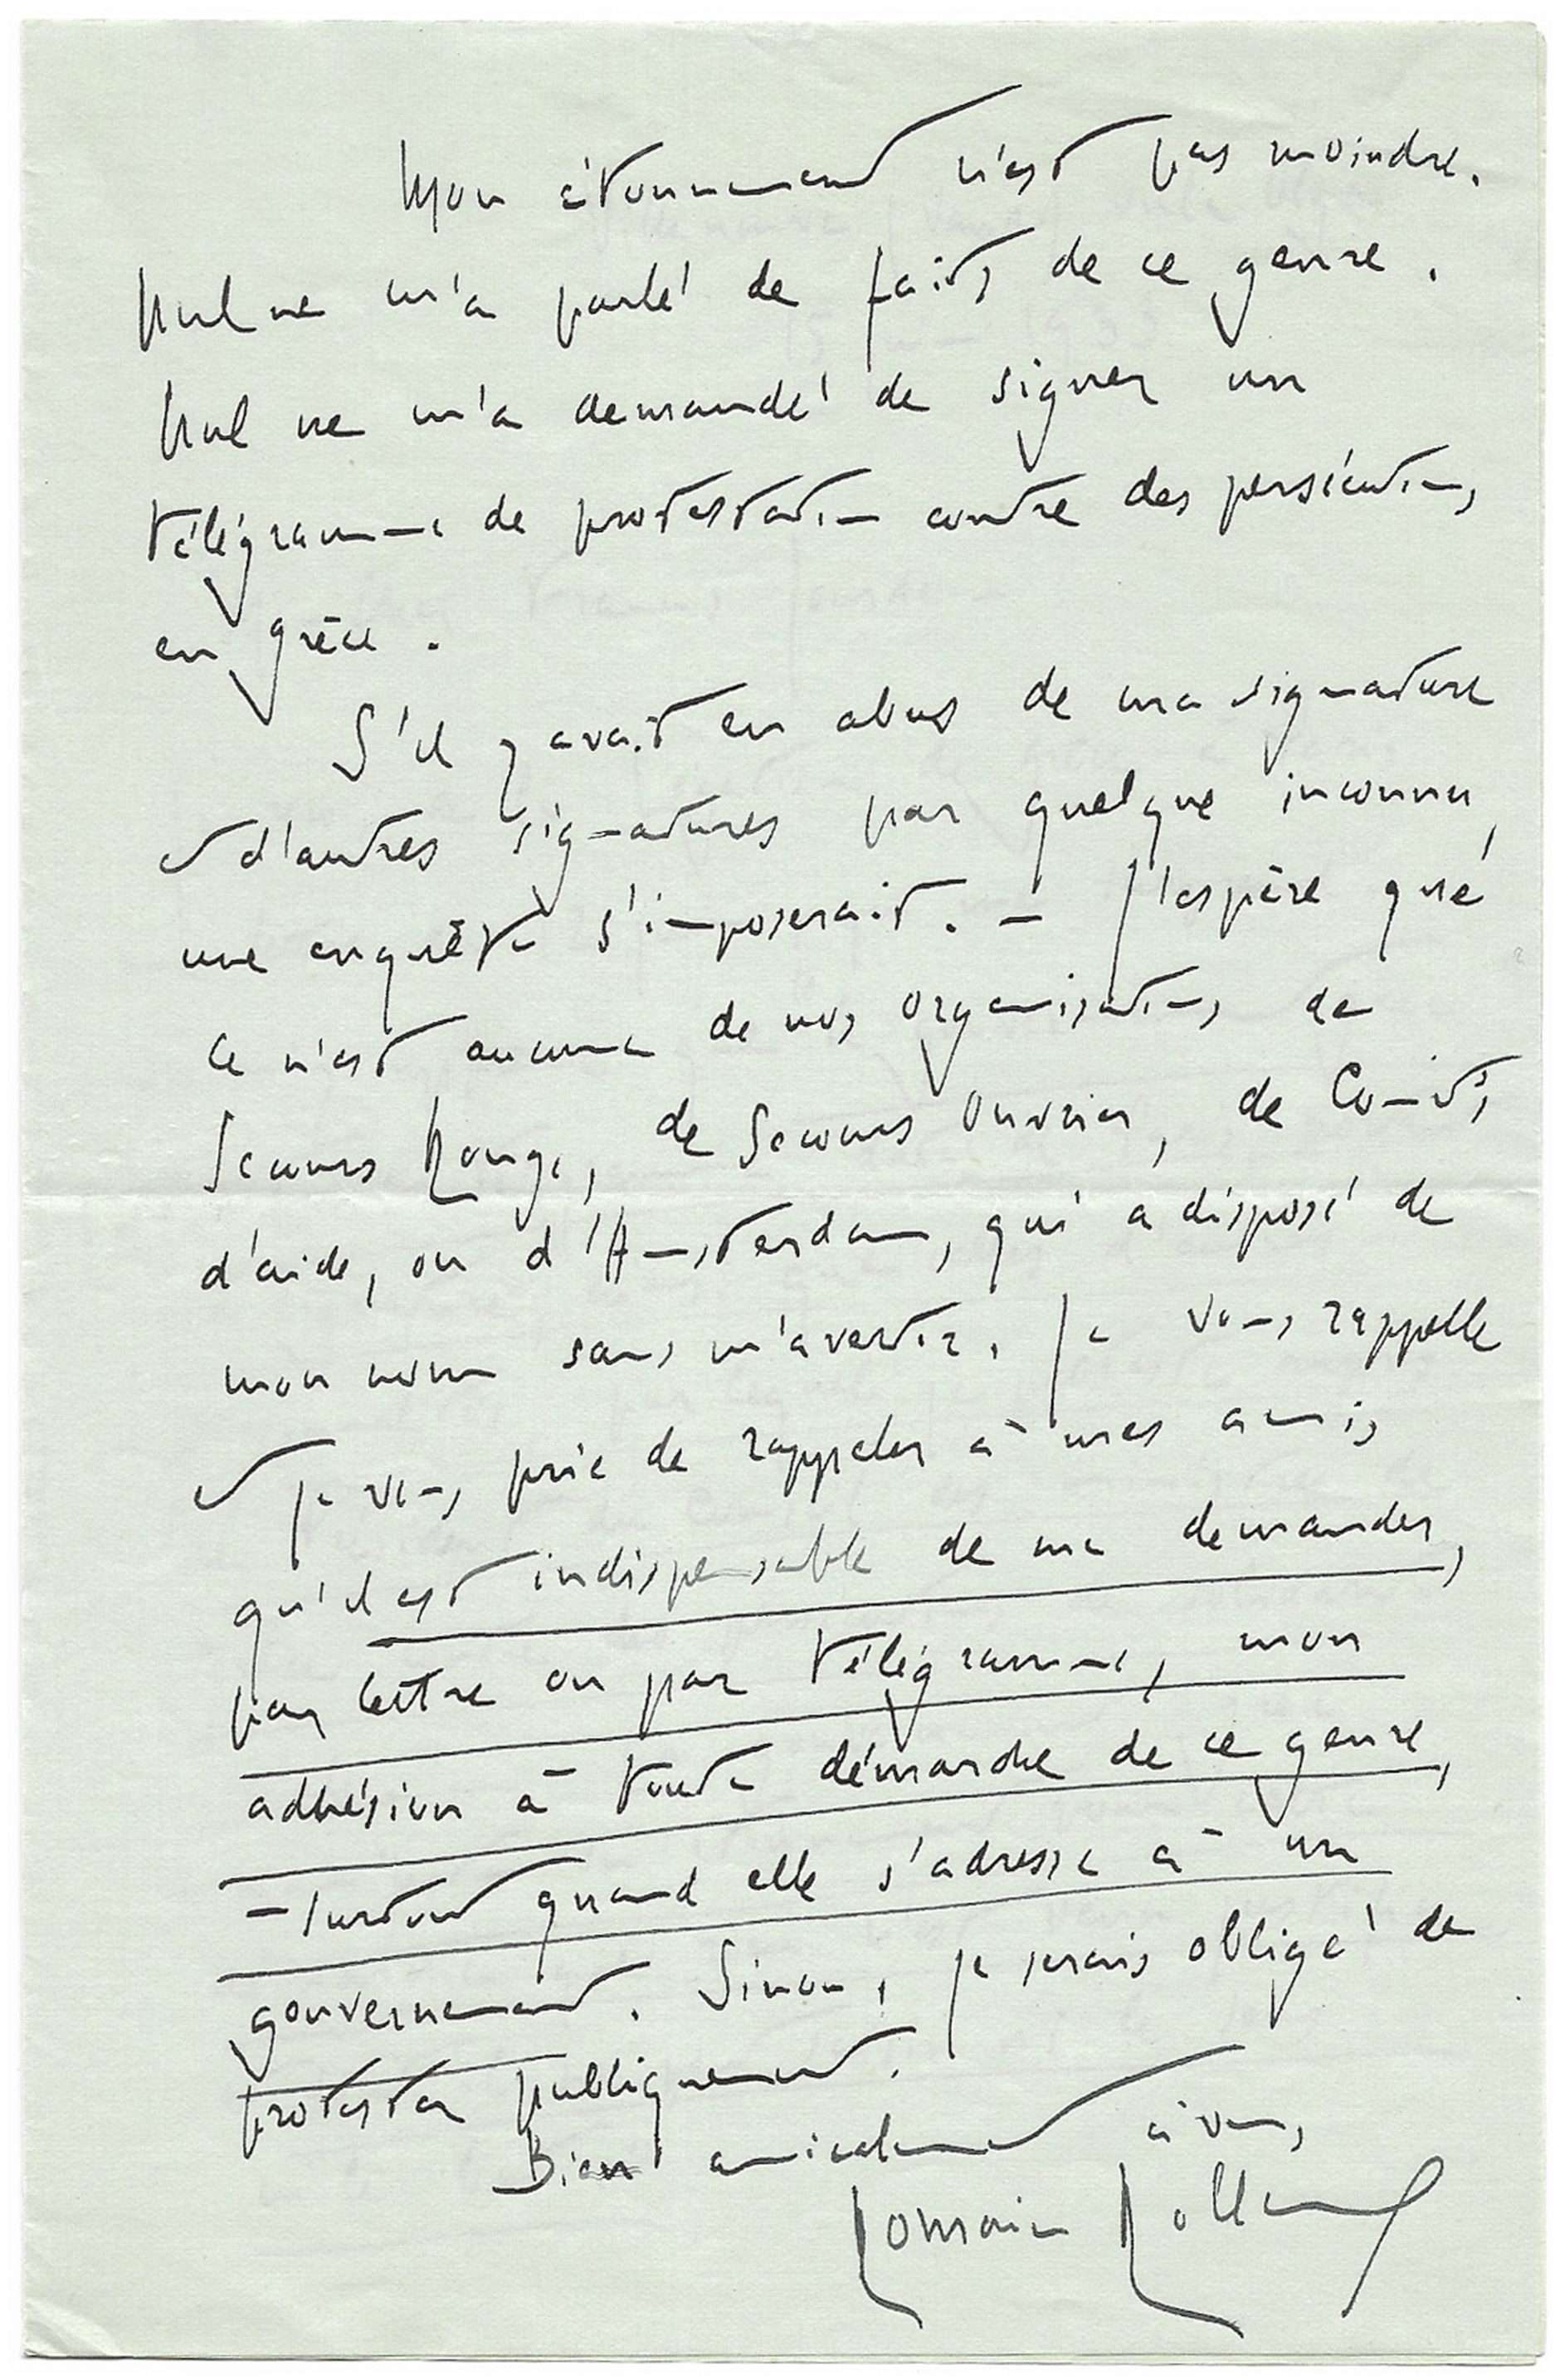 Mon étonnement n'est pas moindre.
Nul ne m'a parlé de faits de ce genre.
Nul ne m'a demandé de signer un
télégramme de protestation contre des persécutions
en Grèce.
S'il y avait eu abus de ma signature
et d'autres signatures par quelque inconnu,
une enquête s'imposerait. — J'espère que
ce n'est aucune de nos organisations de
Secours Rouge, de Secours Ouvrier, de Comités
d'aide, ou d'Amsterdam, qui a disposé de
mon nom sans m'avertir. Je vous rappelle
et je vous prie de rappeler à mes amis
qu'il est indispensable de me demander,
par lettre ou par télégramme, mon
adhésion à toute démarche de ce genre,
— surtout quand elle s'adresse à un
gouvernement. Sinon, je serais obligé de
protester publiquement.
Bien amicalement à vous,
Romain Rolland